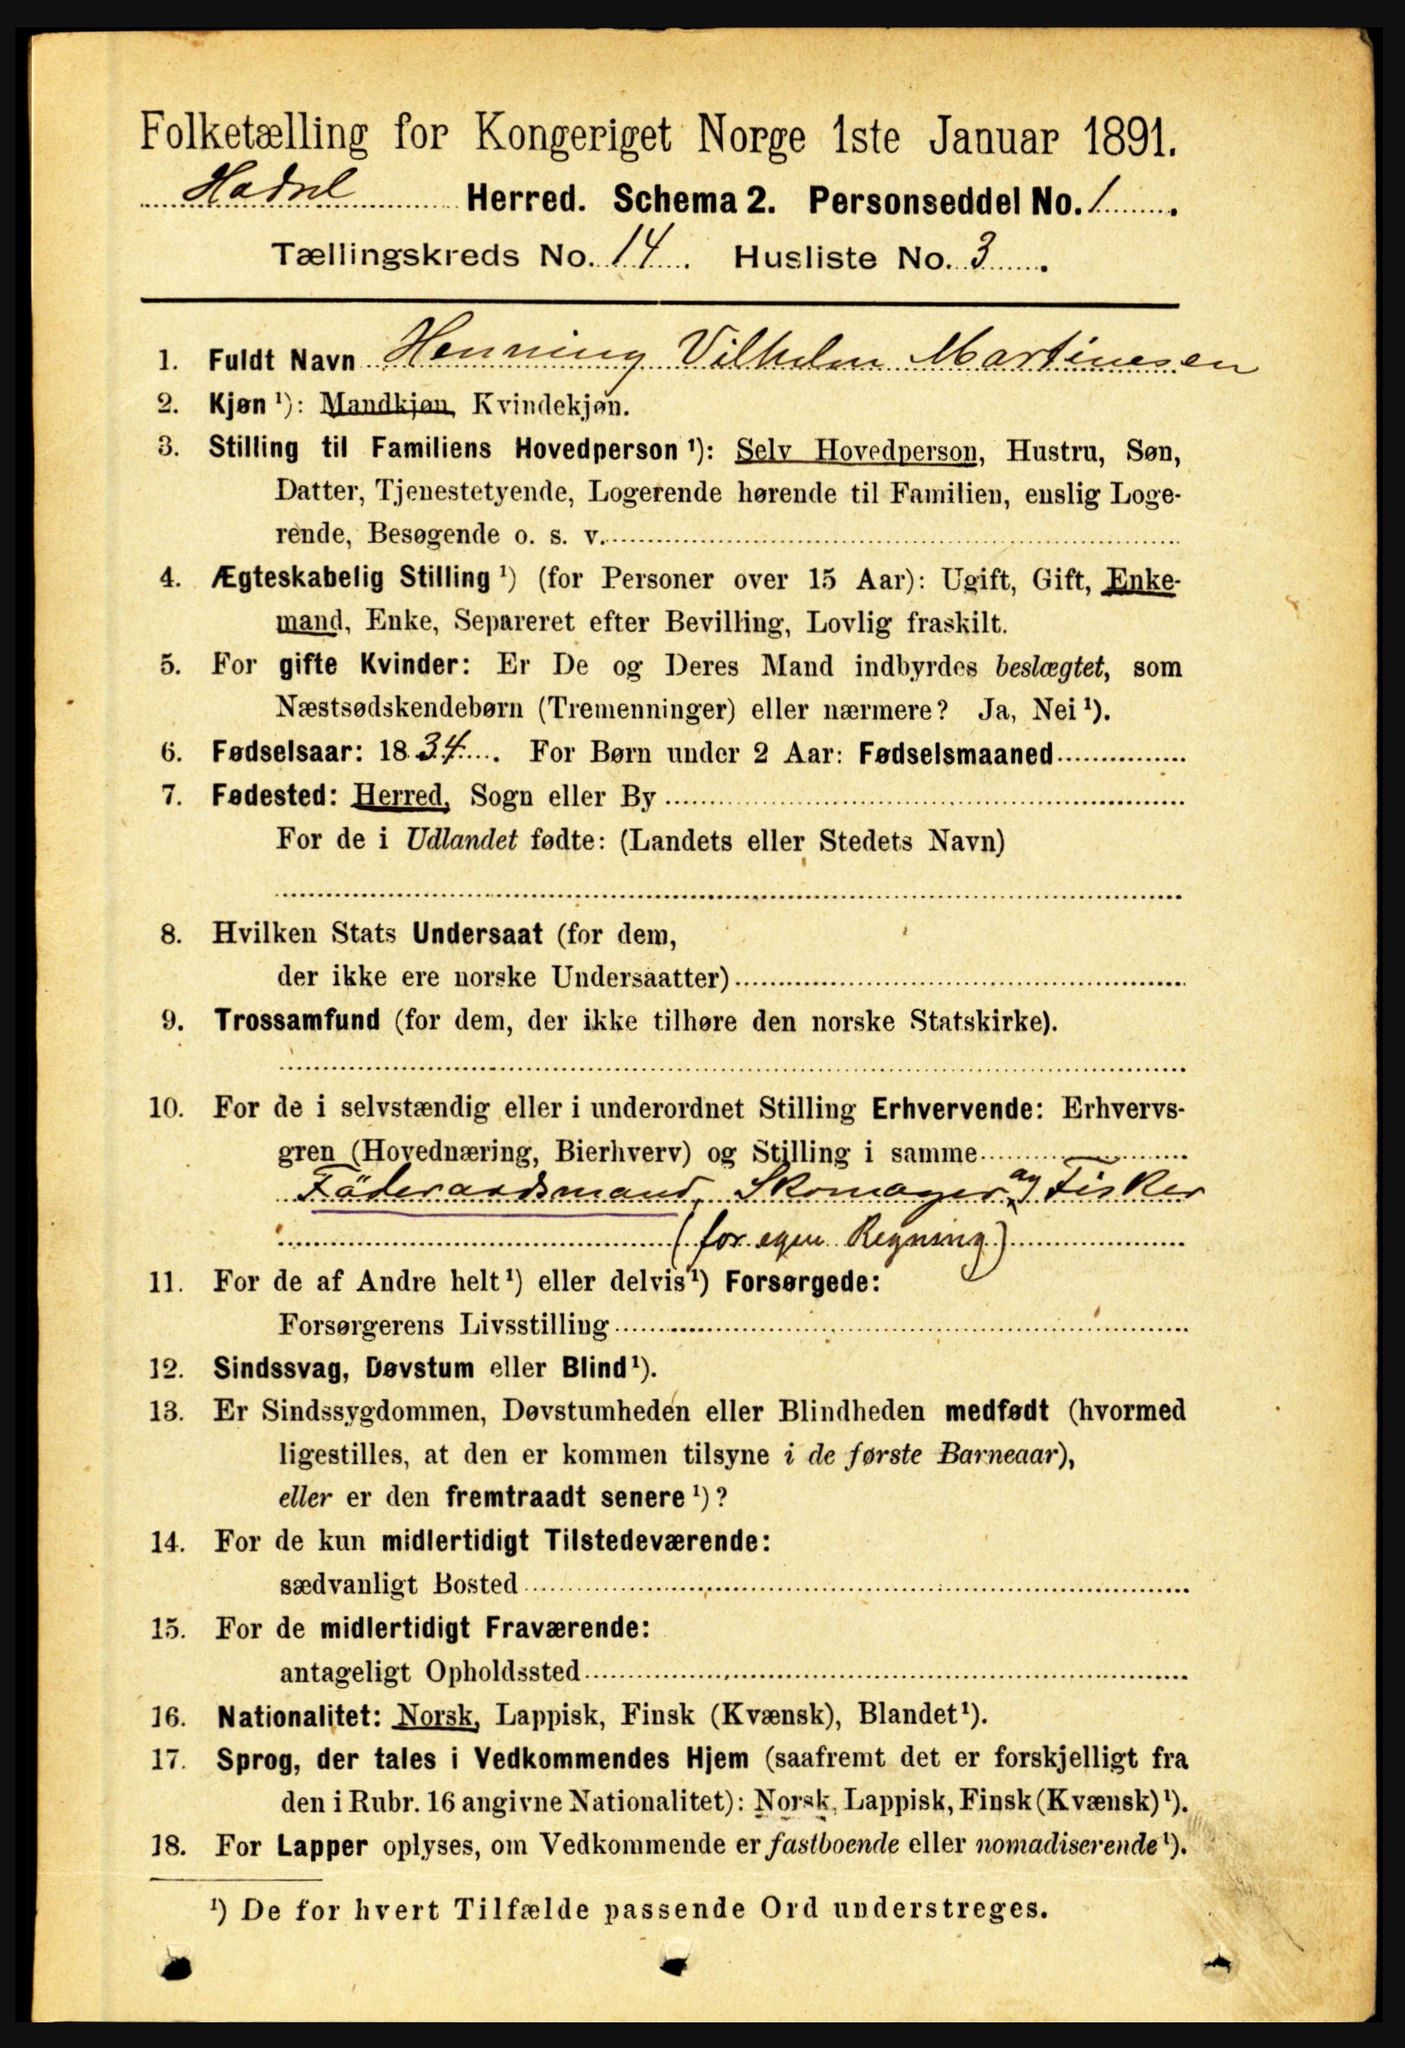 Folketælling for Kongeriget Norge 1ste Januar 1891.
Hadsel Herred. Schema 2. Personseddel No. 1.
Tællingskreds No. 14. Husliste No. 3.
1. Fuldt Navn Henning Vilhelm Martinesen
2. Kjøn ¹): Mandkjøn, Kvindekjøn.
3. Stilling til Familiens Hovedperson ¹): Selv Hovedperson, Hustru, Søn,
Datter, Tjenestetyende, Logerende hørende til Familien, enslig Loge-
rende, Besøgende o. s. v.
4. Ægteskabelig Stilling ¹) (for Personer over 15 Aar): Ugift, Gift, Enke-
mand, Enke, Separeret efter Bevilling, Lovlig fraskilt.
5. For gifte Kvinder: Er De og Deres Mand indbyrdes beslægtet, som
Næstsødskendebørn (Tremenninger) eller nærmere? Ja, Nei ¹).
6. Fødselsaar: 1834. For Børn under 2 Aar: Fødselsmaaned
7. Fødested: Herred, Sogn eller By
For de i Udlandet fødte: (Landets eller Stedets Navn)
8. Hvilken Stats Undersaat (for dem,
der ikke ere norske Undersaatter)
9. Trossamfund (for dem, der ikke tilhøre den norske Statskirke).
10. For de i selvstændig eller i underordnet Stilling Erhvervende: Erhvervs-
gren (Hovednæring, Bierhverv) og Stilling i samme
Föderaadsmand, Skomager og Fisker
(for egen Regning)
11. For de af Andre helt ¹) eller delvis ¹) Forsørgede:
Forsørgerens Livsstilling
12. Sindssvag, Døvstum eller Blind ¹).
13. Er Sindssygdommen, Døvstumheden eller Blindheden medfødt (hvormed
ligestilles, at den er kommen tilsyne i de første Barneaar),
eller er den fremtraadt senere ¹)?
14. For de kun midlertidigt Tilstedeværende:
sædvanligt Bosted
15. For de midlertidigt Fraværende:
antageligt Opholdssted
16. Nationalitet: Norsk, Lappisk, Finsk (Kvænsk), Blandet ¹).
17. Sprog, der tales i Vedkommendes Hjem (saafremt det er forskjelligt fra
den i Rubr. 16 angivne Nationalitet): Norsk, Lappisk, Finsk (Kvænsk) ¹).
18. For Lapper oplyses, om Vedkommende er fastboende eller nomadiserende ¹).
¹) De for hvert Tilfælde passende Ord understreges.